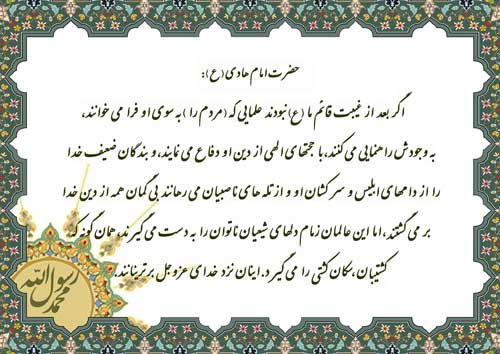 حضرت امام هادی (ع):
اگر بعد از غیبت قائم ما (ع) نبودند علمایی که (مردم را ) به سوی او فرا می خوانند،
به وجودش راهنمایی می کنند، با حجتهای الهی از دین او دفاع می نمایند، و بندگان ضعیف خدا
را از دامهای ابلیس و سرکشان او و از تله های ناصبیان می رهانند بی گمان همه از دین خدا
بر می گشتند، اما این عالمان زمام دلهای شیعیان ناتوان را به دست می گیرند، همان گونه که
کشتیبان، سکان کشتی را می گیرد. اینان نزد خدای عزوجل برترینانند.
محمد رسول الله